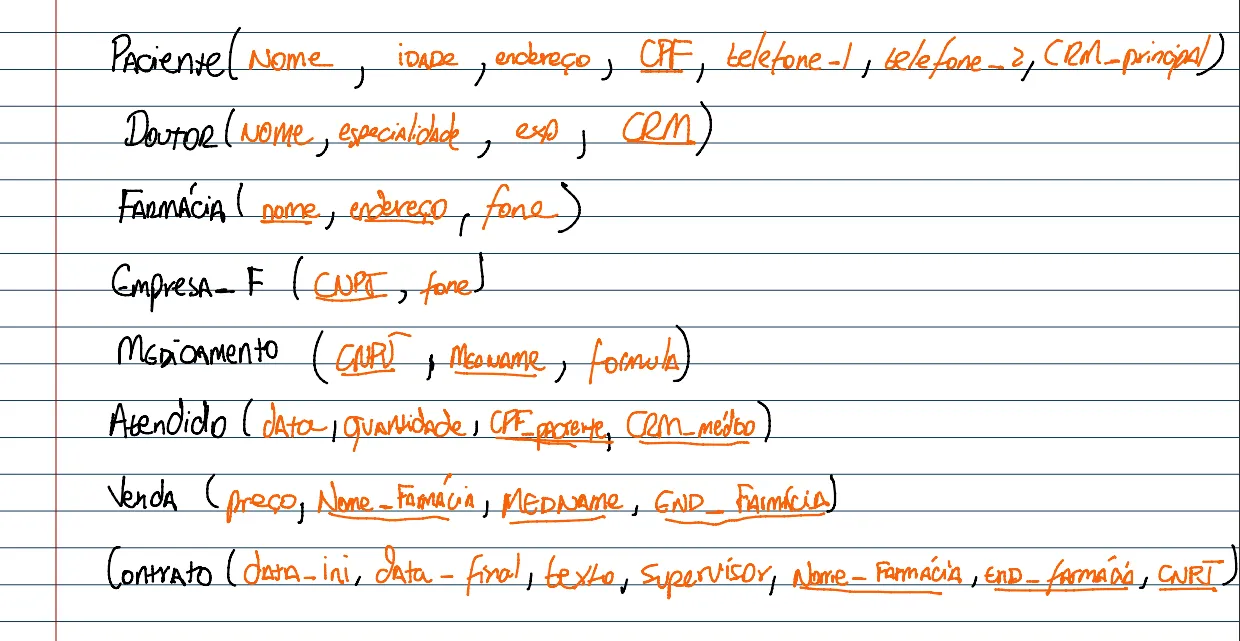 Paciente( Nome, idade, endereço, CPF, telefone-1, telefone_2, CRM_principal)
Doutor(Nome, especialidade, exp, CRM)
Farmácia( nome, endereço, fone)
Empresa_F (CNPJ, fone)
Medicamento (CNPJ, MEDNAME, formula)
Atendido (data, quantidade, CPF_paciente, CRM_médico)
Venda (preço, Nome_Farmácia, MEDNAME, END_Farmácia)
Contrato (data_ini, data_final, texto, supervisor, Nome_Farmácia, End_farmácia, CNPJ)